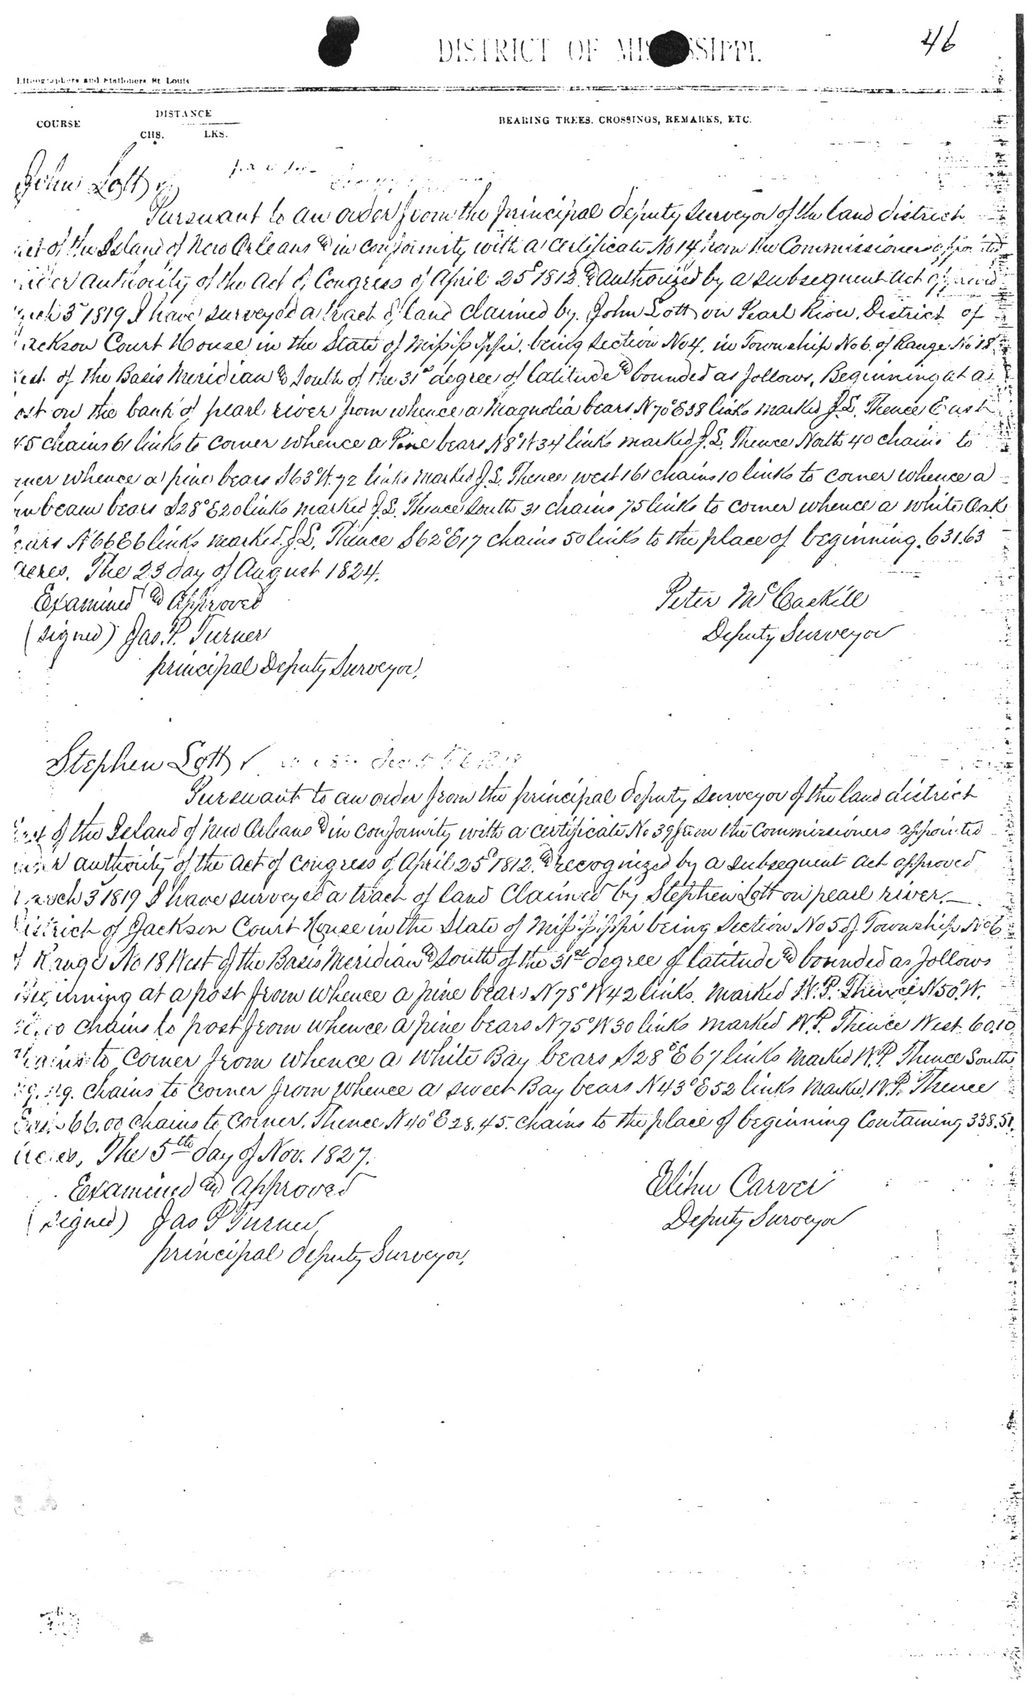 DISTRICT OF MISSISSIPPI.
46
Lithographers and Stationers St Louis
COURSE DISTANCE BEARING TREES, CROSSINGS, REMARKS, ETC.
CHS. LKS.
John Lott
Pursuant to an order from the principal deputy surveyor of the land district
of the Island of New Orleans & in conformity with a certificate No 14 from the Commissioners
authority of the act of Congress of April 25th 1812 & authorized by a subsequent act
3d 1819 I have surveyed a tract of land claimed by John Lott on Pearl River. District of
Jackson Court House in the State of Mississippi, being section No 4, in Township No 6, of Range No 18
West of the Basis Meridian & South of the 31st degree of latitude & bounded as follows, Beginning at a
ost on the bank of pearl river from whence a Magnolia bears N 70° E 38 links marked J.L. Thence East
45 chains 61 links to corner whence a Pine bears N 8° W 34 links marked J.L. Thence North 40 chains to
rner whence a pine bears S 63° W. 72 links marked J.L. Thence west 161 chains 10 links to corner whence a
beam bears S 28° E 20 links marked J.L. Thence South 31 chains 75 links to corner whence a White Oak
ears N 66 E 6 links marked J.L. Thence S 62° E 17 chains 50 links to the place of beginning. 631.63
acres. The 23 day of August 1824.
Examined & Approved Peter McCaskill
(signed) Jas. P. Turner Deputy Surveyor
principal Deputy Surveyor.
Stephen Lott
Pursuant to an order from the principal deputy surveyor of the land district
of the Island of New Orleans & in conformity with a certificate No 39 from the Commissioners appointed
authority of the act of congress of April 25th 1812. & recognized by a subsequent act approved
March 3d 1819 I have surveyed a tract of land Claimed by Stephen Lott on pearl river.
District of Jackson Court House in the State of Mississippi being Section No 5 of Township No 6
of Range No 18 West of the Basis Meridian & South of the 31st degree of latitude & bounded as follows
Beginning at a post from whence a pine bears N 75° W 42 links. marked W.P. Thence N 50° W.
chains to post from whence a pine bears N 75° W 30 links marked W.P. Thence West. 60.10
chains to corner from whence a White Bay bears S 28° E 67 links marked W.P. Thence South
chains to corner from whence a sweet Bay bears N 43° E 52 links marked W.P. Thence
East 66.00 chains to corner. Thence N 40° E 28.45. chains to the place of beginning Containing 338.51
acres. The 5th day of Nov. 1827.
Examined and Approved Elihu Carver
(signed) Jas P Turner Deputy Surveyor
principal deputy Surveyor.